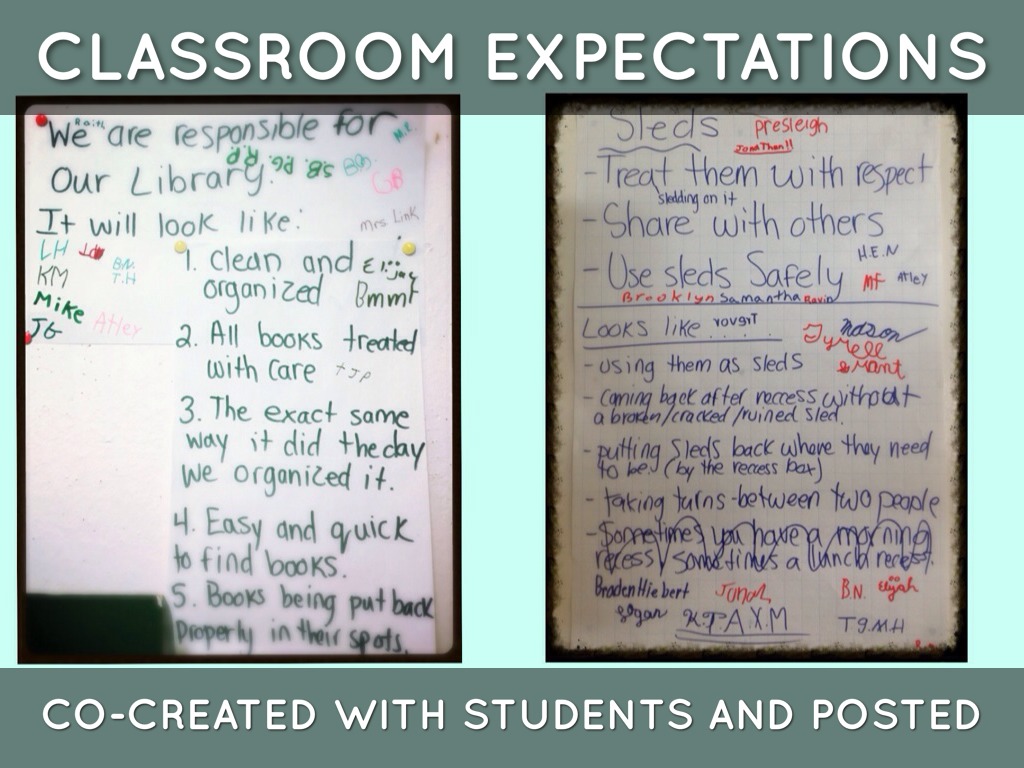 CLASSROOM EXPECTATIONS
We are responsible for
Our Library.
It will look like:
Mrs Link
LH
KM
B.N.
T.H
Mike
JG
Atley
M.E.
SB.
PG.
R.P
GB
1. Clean and
organized
Elijay
Bmmf
2. All books treated
with care
TJP
3. The exact same
way it did the day
we organized it.
4. Easy and quick
to find books.
5. Books being put back
Properly in their spots.
Sleds
presleigh
JonaThan!!
-Treat them with respect
sledding on it
-Share with others
H.E.N
-Use sleds Safely
MF
Atley
Brooklyn Samantha Ravin
Looks like ....
Mason
Tyrell
Grant
-using them as sleds
-coming back after recess without
a broken/cracked/ruined sled.
-putting sleds back where they need
to be (by the recess box)
-taking turns-between two people
-Sometimes you have a morning
recess, sometimes a lunch recess.
Braden Hiebert
Jonah
B.N.
Elijah
Logan
K.P.A.X.M
T.J.M.H
CO-CREATED WITH STUDENTS AND POSTED